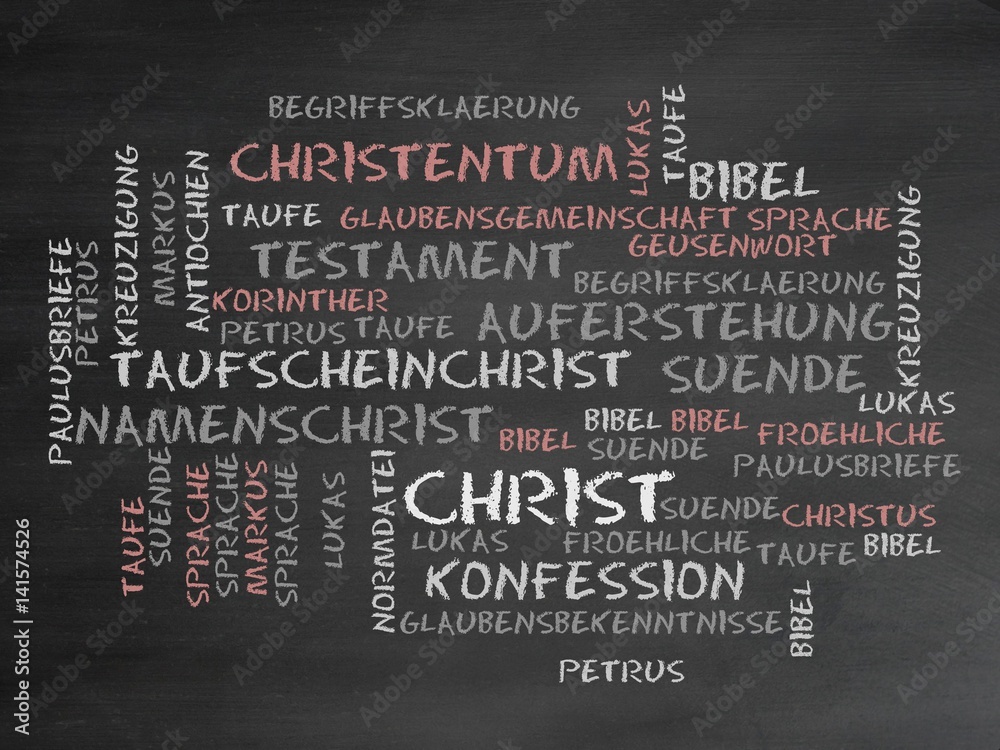 BEGRIFFSKLAERUNG
CHRISTENTUM
LUKAS
TAUFE
BIBEL
KREUZIGUNG
MARKUS
ANTIOCHIEN
TAUFE
GLAUBENSGEMEINSCHAFT SPRACHE
GEUSENWORT
KREUZIGUNG
PAULUSBRIEFE
PETRUS
TESTAMENT
BEGRIFFSKLAERUNG
KORINTHER
PETRUS TAUFE
AUFERSTEHUNG
TAUFSCHEINCHRIST
SUENDE
LUKAS
NAMENSCHRIST
BIBEL
BIBEL
BIBEL
FROEHLICHE
SUENDE
PAULUSBRIEFE
TAUFE
SUENDE
SPRACHE
SPRACHE
MARKUS
SPRACHE
LUKAS
NORMDATEI
CHRIST
SUENDE
CHRISTUS
LUKAS
FROEHLICHE
TAUFE
BIBEL
KONFESSION
BIBEL
GLAUBENSBEKENNTNISSE
PETRUS
Adobe Stock | #141574526